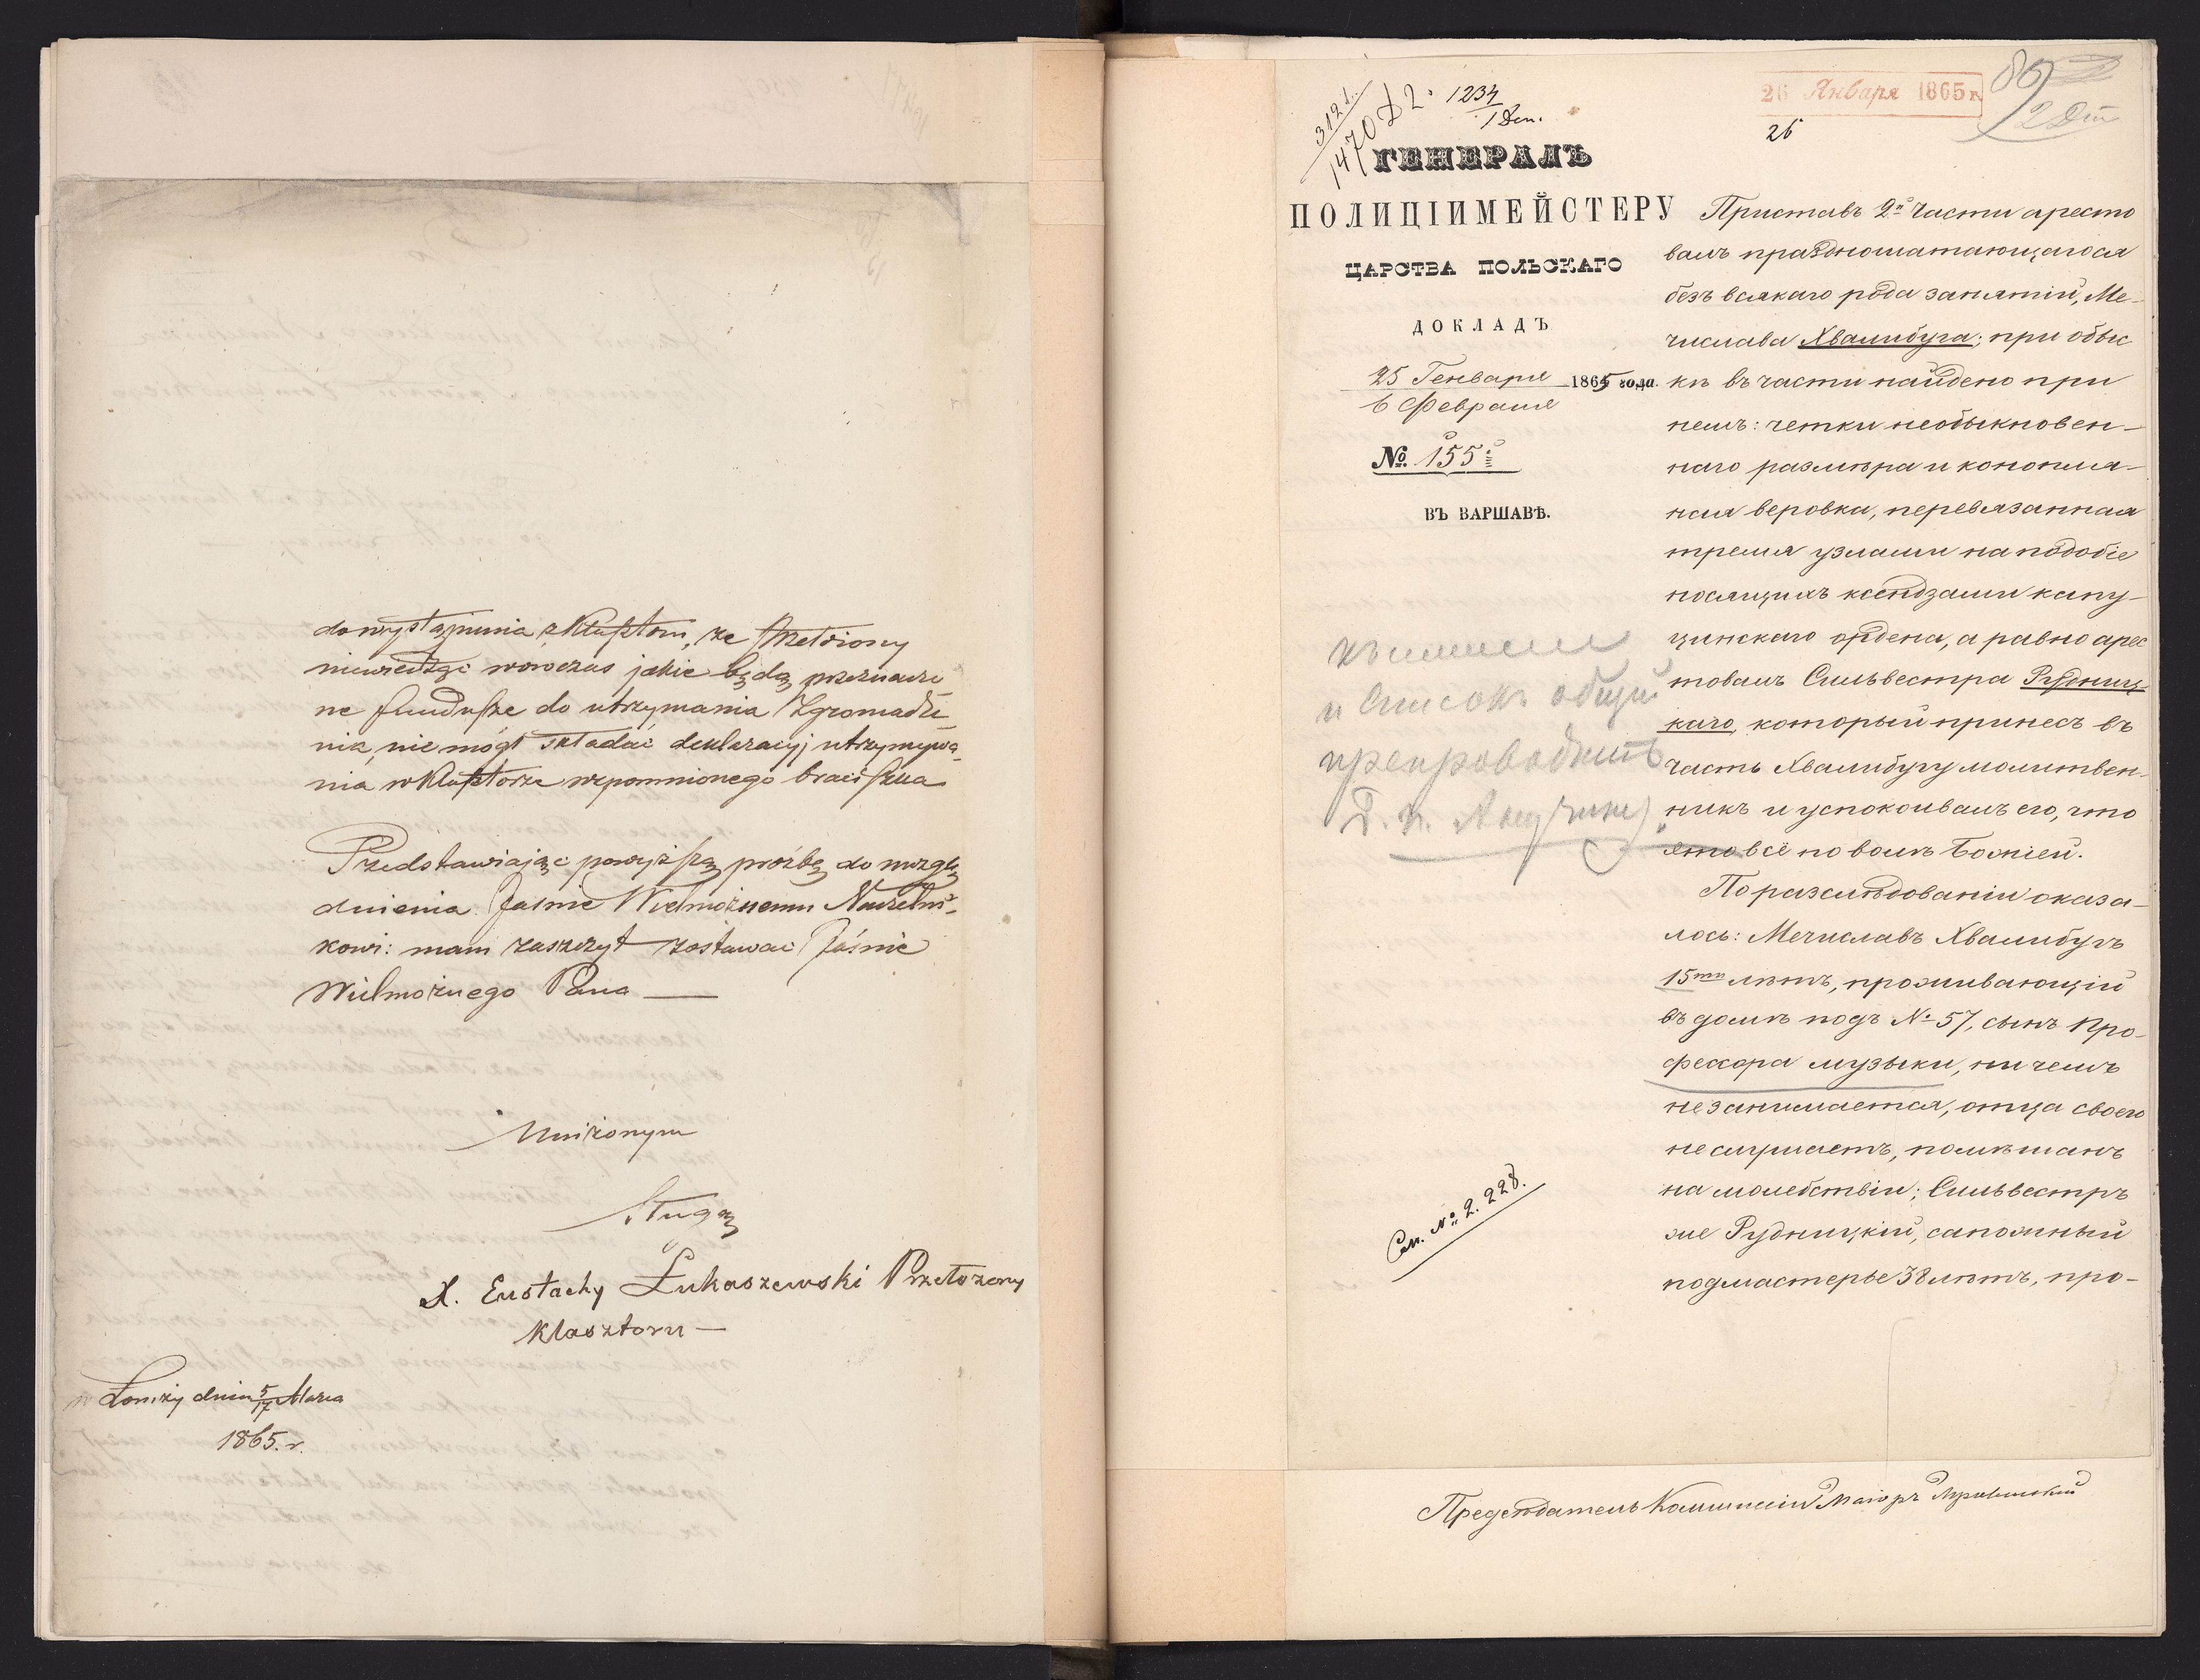 do wystąpienia z Klasztoru, że Przełożony
niewiedząc wówczas jakie będą przeznaczo
ne fundusze do utrzymania Zgromadze_
nia, nie mógł składać deklaracyj utrzymywa_
nia w Klasztorze wspomnionego braciszka
Przedstawiając powyższą prośbę do uwzglę
dnienia Jaśnie Wielmożnemu Naczelni_
kowi: mam zaszczyt zostawać Jaśnie
Wielmożnego Pana —
Uniżonym
sługą
X. Eustachy Łukaszewski Przełożony
Klasztoru —
w Łomży dnia 5/17 Marca
1865. r.
3121.
1470 D 2.
1234
1 Ден.
26 Января 1865 г.
26
86
2 Дт
ГЕНЕРАЛЪ
ПОЛИЦІИМЕЙСТЕРУ
ЦАРСТВА ПОЛЬСКАГО
ДОКЛАДЪ
25 Генваря
6 Февраля
1865 года.
№ 155
ВЪ ВАРШАВѢ.
и список общий
препроводить
См. № 2. 228.
Приставъ 2й Части аресто
валъ праздношатающагося
безъ всякаго рода занятій, Ме-
числава Хвалибуга; при обыс
кѣ въ части найдено при
немъ: четки необыкновен-
наго размѣра и конопля-
ная веровка, перевязанная
тремя узлами на подобіе
носящихъ ксендзами капу-
цинскаго ордена, а равно арес
товалъ Сильвестра Рудниц-
каго, который принесъ въ
часть Хвалибугу молитвен-
никъ и успокоивалъ его, что
это всё по волѣ Божіей.
По разслѣдованіи оказа-
лось: Мечиславъ Хвалибугъ
15ти лѣтъ, проживающій
въ домѣ подъ № 57, сынъ Про-
фессора музыки, ни чемъ
не занимается, отца своего
не слушаетъ, помѣшанъ
на молебствіи; Сильвестръ
же Рудницкій, сапожный
подмастерье 38 лѣтъ, про-
Предсѣдатель Коммиссіи Маіоръ